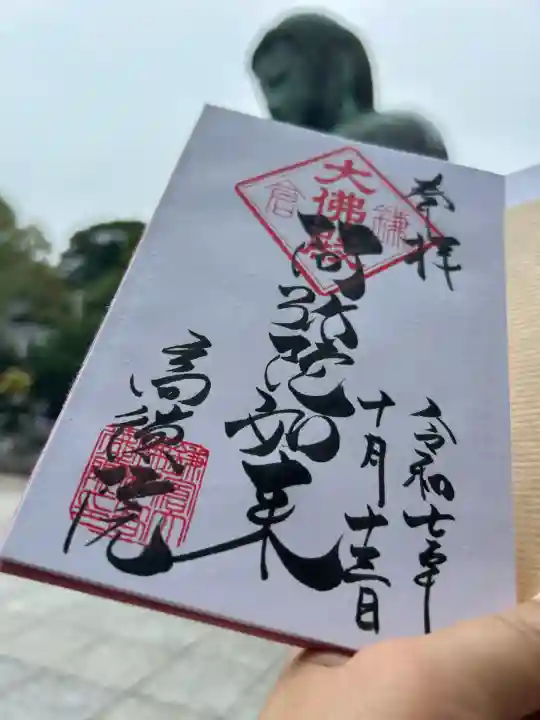 奉拝
令和七年
十月十三日
大佛殿
鎌倉
阿弥陀如来
高徳院